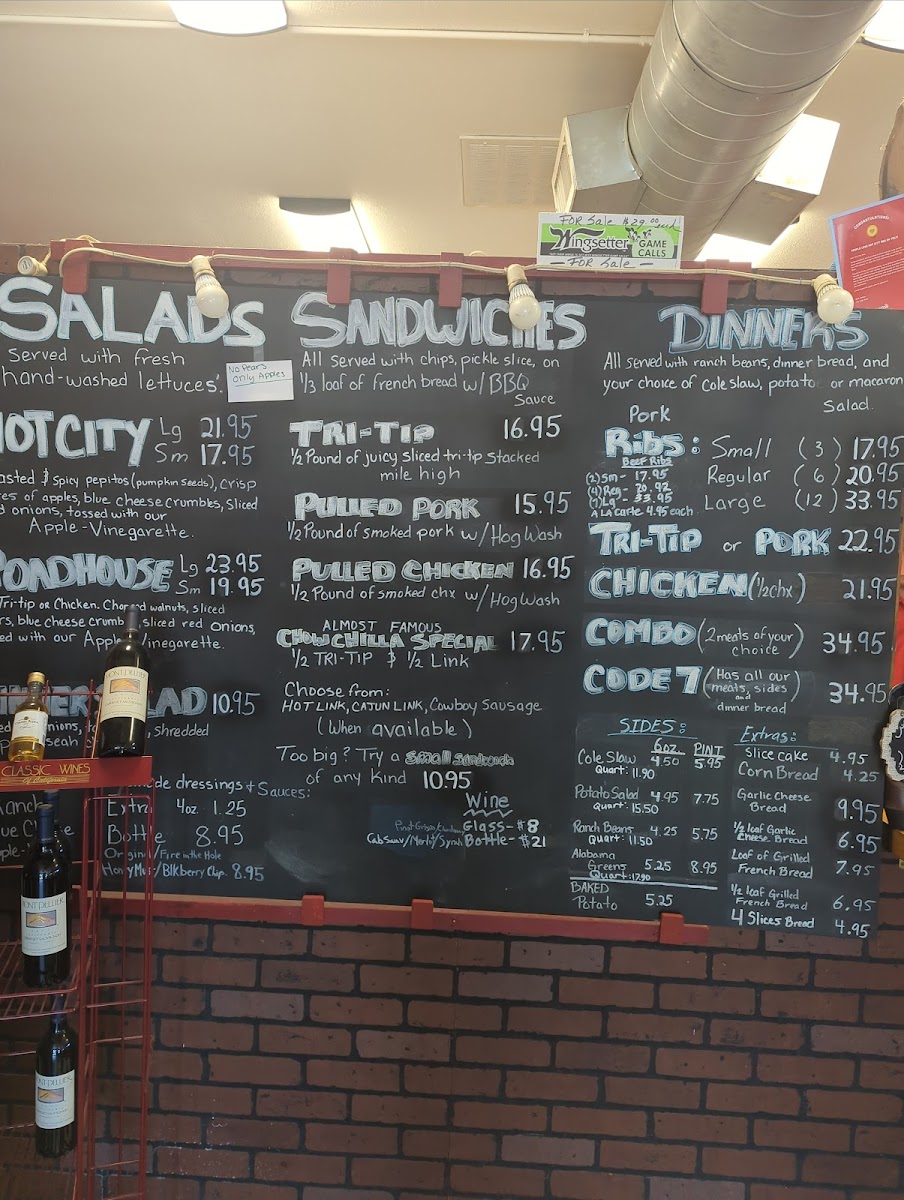 FOR Sale $29.00
Wingsetter GAME CALLS
— FOR Sale —
SALADS
Served with fresh
hand-washed lettuces.
No Pears
Only Apples
HOT CITY Lg 21.95
Sm 17.95
& Spicy pepitos (pumpkin seeds), crisp
of apples, blue cheese crumbles, sliced
onions, tossed with our
Apple-Vinegarette.
PONDHOUSE Lg 23.95
Sm 19.95
Tri-tip or Chicken. walnuts, sliced
blue cheese sliced red onions,
with our
10.95
onions, shredded
dressings + Sauces:
Extra 4oz. 1.25
Bottle 8.95
Original/Fire in the Hole
Honey Must/Blkberry Chip. 8.95
SANDWICHES
All Served with chips, pickle slice, on
1/3 loaf of French bread w/BBQ
Sauce
TRI-TIP 16.95
1/2 Pound of juicy sliced tri-tip stacked
mile high
PULLED PORK 15.95
1/2 Pound of smoked pork w/HogWash
PULLED CHICKEN 16.95
1/2 Pound of smoked chx w/HogWash
ALMOST FAMOUS
CHOWCHILLA SPECIAL 17.95
1/2 TRI-TIP & 1/2 Link
Choose from:
HOT LINK, CAJUN LINK, Cowboy Sausage
(When available)
Too big? Try a small sandwich
of any Kind 10.95
Wine
Glass - $8
Cab Sauv/Merlt/Syrah Bottle - $21
DINNERS
All served with ranch beans, dinner bread, and
your choice of cole slaw, potato or macaroni
Salad.
Pork
RIBS: Small (3) 17.95
BEEF RIBS
(2) Sm - 17.95
Regular (6) 20.95
(4) Reg - 20.92
Large (12) 33.95
Lg - 33.95
A LA Carte 4.95 each
TRI-TIP or PORK 22.95
CHICKEN (1/2 chx) 21.95
COMBO (2 meats of your choice) 34.95
CODE 7 (Has all our meats, sides and dinner bread) 34.95
SIDES: 6oz. PINT
Cole Slaw 4.50 5.95
Quart: 11.90
Potato Salad 4.95 7.75
Quart: 15.50
Ranch Beans 4.25 5.75
Quart: 11.50
Alabama
Greens 5.25 8.95
Quart: 17.90
BAKED
Potato 5.25
Extras:
Slice cake 4.95
Corn Bread 4.25
Garlic Cheese
Bread 9.95
1/2 loaf Garlic
Cheese Bread 6.95
Loaf of Grilled
French Bread 7.95
1/2 loaf Grilled
French Bread 6.95
4 Slices Bread 4.95
CLASSIC WINES
of California
MONTPELLIER
MONTPELLIER
MONTPELLIER